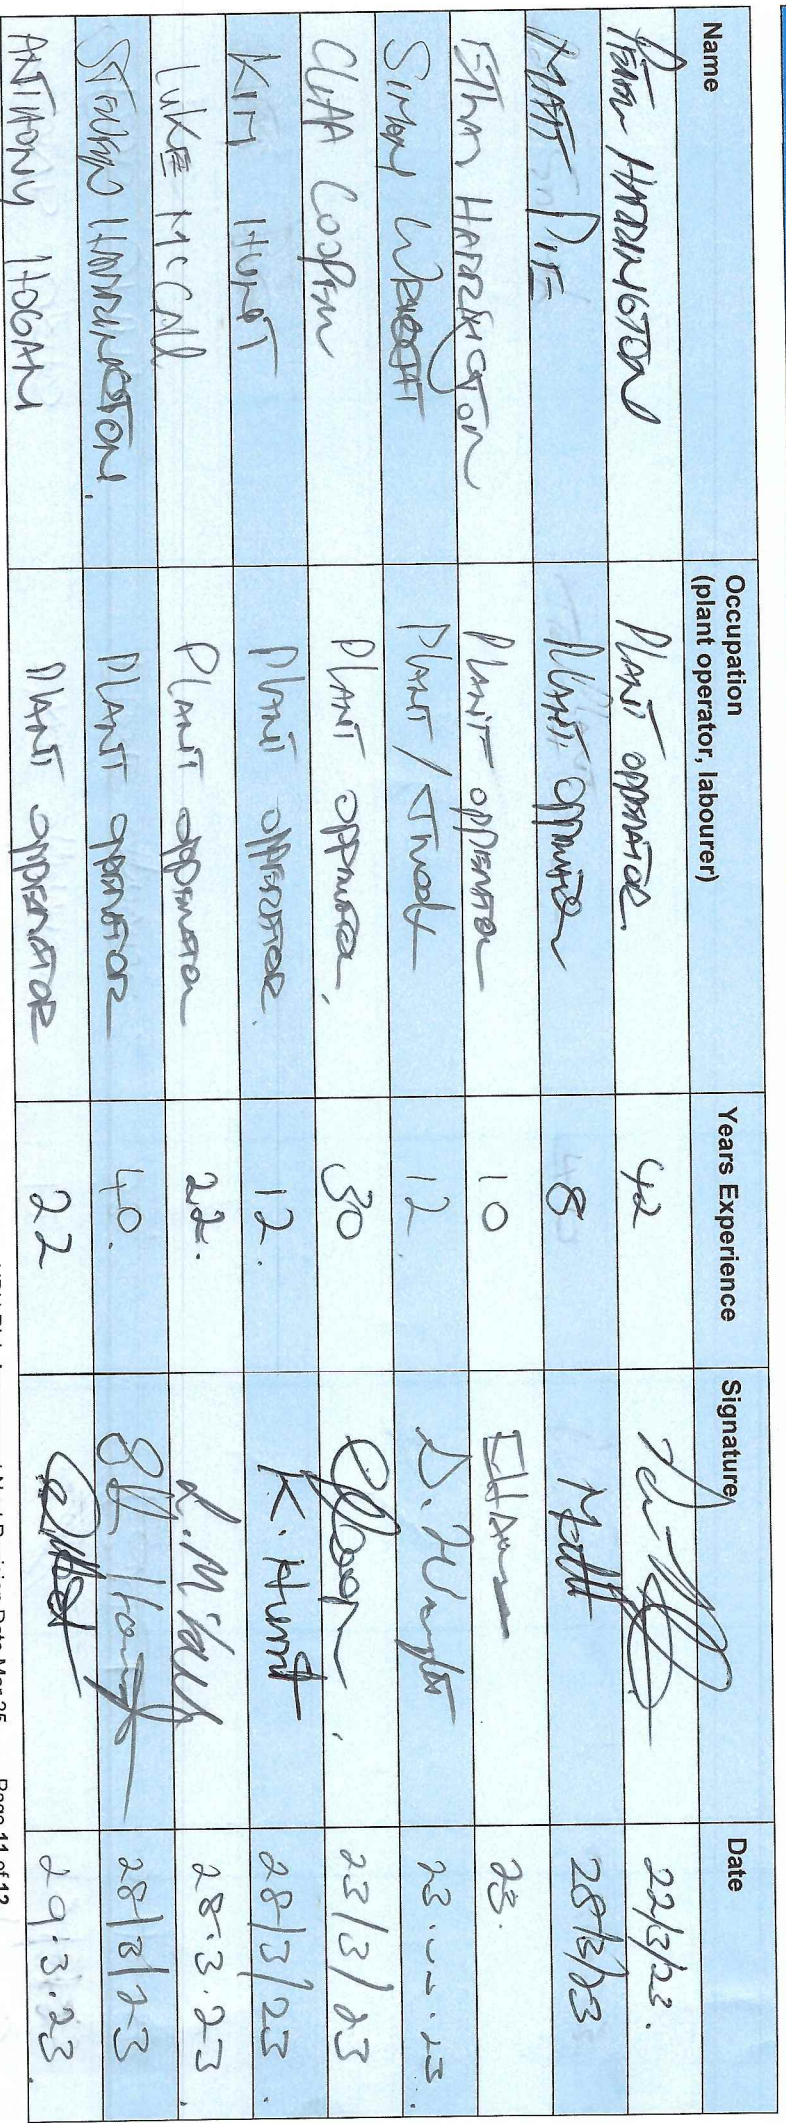 Name Occupation (plant operator, labourer) Years Experience Signature Date
HARRINGTON PLANT OPPERATOR. 42 22/3/23.
MATT PIE PLANT OPPERATOR 8 Matt 28/3/23
ETHAN HARRINGTON PLANT OPPERATOR 10 23.
SIMON WRIGHT PLANT / TRUCK 12. S. Wright 23. .23.
CLIFF COOPER PLANT OPPERATOR. 30 23/3/23
KIM HUNT PLANT OPPERATOR. 12. K. Hunt 28/3/23.
LUKE McCALL PLANT OPPERATOR 22. 28.3.23.
STEVEN HARRINGTON. PLANT OPPERATOR 40. 28/3/23
ANTHONY HOGAN PLANT OPPERATOR 22 29.3.23.
Revision Date Mar 25 Page 11 of 12